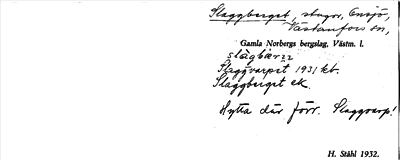 Slaggberget, skogr, Ensjö,
Västanfors sn,
Gamla Norbergs bergslag, Västm. l.
slagbærz
Slaggvarpet 1931 kb.
Slaggberget ek.
Hytta där förr. Slaggvarp!
H. Ståhl 1932.